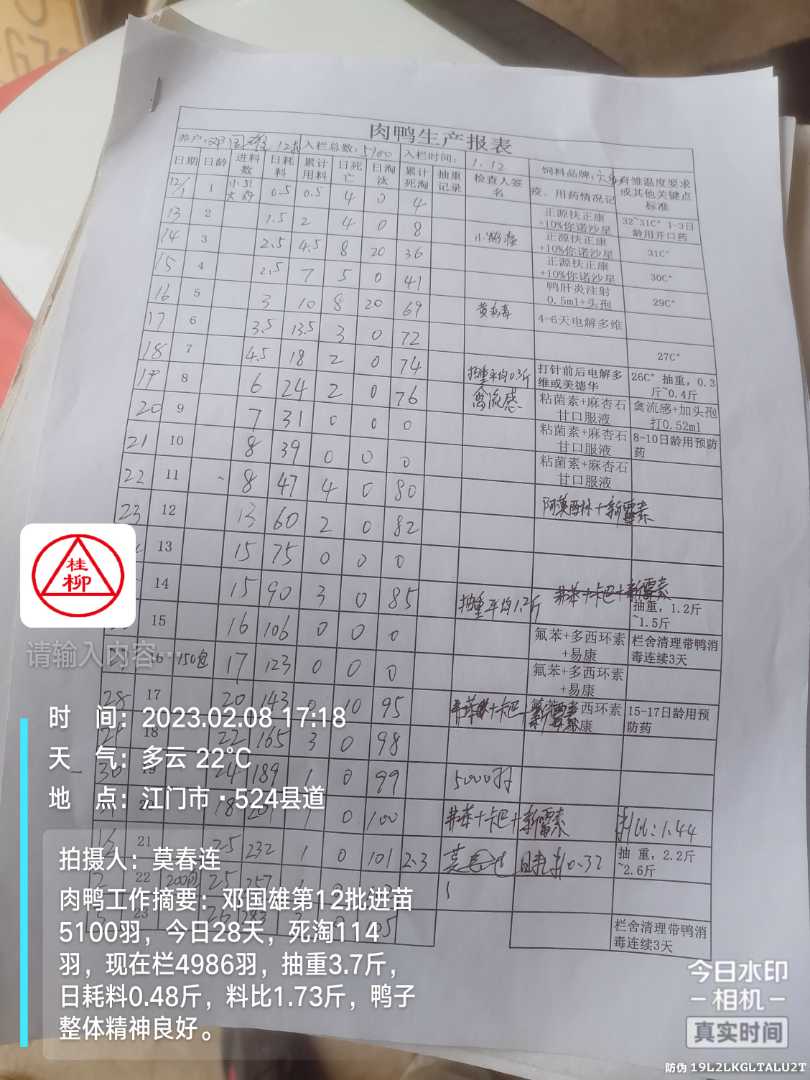 肉鸭生产报表
养户:邓国雄 12批 入栏总数:5100 入栏时间:1.12 饲料品牌:
日期 日龄 进料数 日耗料 累计用料 日死亡 日淘汰 累计死淘 抽重记录 检查人签名 疫、用药情况记 育雏温度要求或其他关键点标准
12/1 1 0.5 0.5 4 0 4 正源扶正康+10%你诺沙星 32~31C° 1-3日龄用开口药
13 2 1.5 2 4 0 8 正源扶正康+10%你诺沙星 31C°
14 3 2.5 4.5 8 20 36 正源扶正康+10%你诺沙星 30C°
15 4 2.5 7 5 0 41 鸭肝炎注射0.5ml+头孢 29C°
16 5 3 10 8 20 69 4-6天电解多维
17 6 3.5 13.5 3 0 72 27C°
18 7 4.5 18 2 0 74 抽重平均0.3斤 打针前后电解多维或美德华 26C° 抽重，0.3斤~0.4斤
19 8 6 24 2 0 76 禽流感 粘菌素+麻杏石甘口服液 禽流感+加头孢打0.52ml
20 9 7 31 0 0 0 粘菌素+麻杏石甘口服液 8-10日龄用预防药
21 10 8 39 0 0 0 粘菌素+麻杏石甘口服液
22 11 8 47 4 0 80
23 12 13 60 2 0 82 阿莫西林+新霉素
13 15 75 0 0 0
14 15 90 3 0 85 抽重平均1.2斤 新霉素 抽重，1.2斤~1.5斤
15 16 106 0 0 0 氟苯+多西环素+易康 栏舍清理带鸭消毒连续3天
150包 17 123 0 0 0 氟苯+多西环素+易康
28 17 20 143 0 10 95 15-17日龄用预防药
18 22 165 3 0 98
30 24 189 1 0 99 5000羽
18 0 100 新霉素 料比:1.44
21 25 232 1 0 101 2.3 莫春连 日耗料0.32 抽重，2.2斤~2.6斤
22 25 257 1 0
23 栏舍清理带鸭消毒连续3天
桂柳
请输入内容...
时 间：2023.02.08 17:18
天 气：多云 22℃
地 点：江门市·524县道
拍摄人：莫春连
肉鸭工作摘要：邓国雄第12批进苗
5100羽，今日28天，死淘114
羽，现在栏4986羽，抽重3.7斤，
日耗料0.48斤，料比1.73斤，鸭子
整体精神良好。
今日水印
相机
真实时间
防伪 19L2LKGLTALU2T